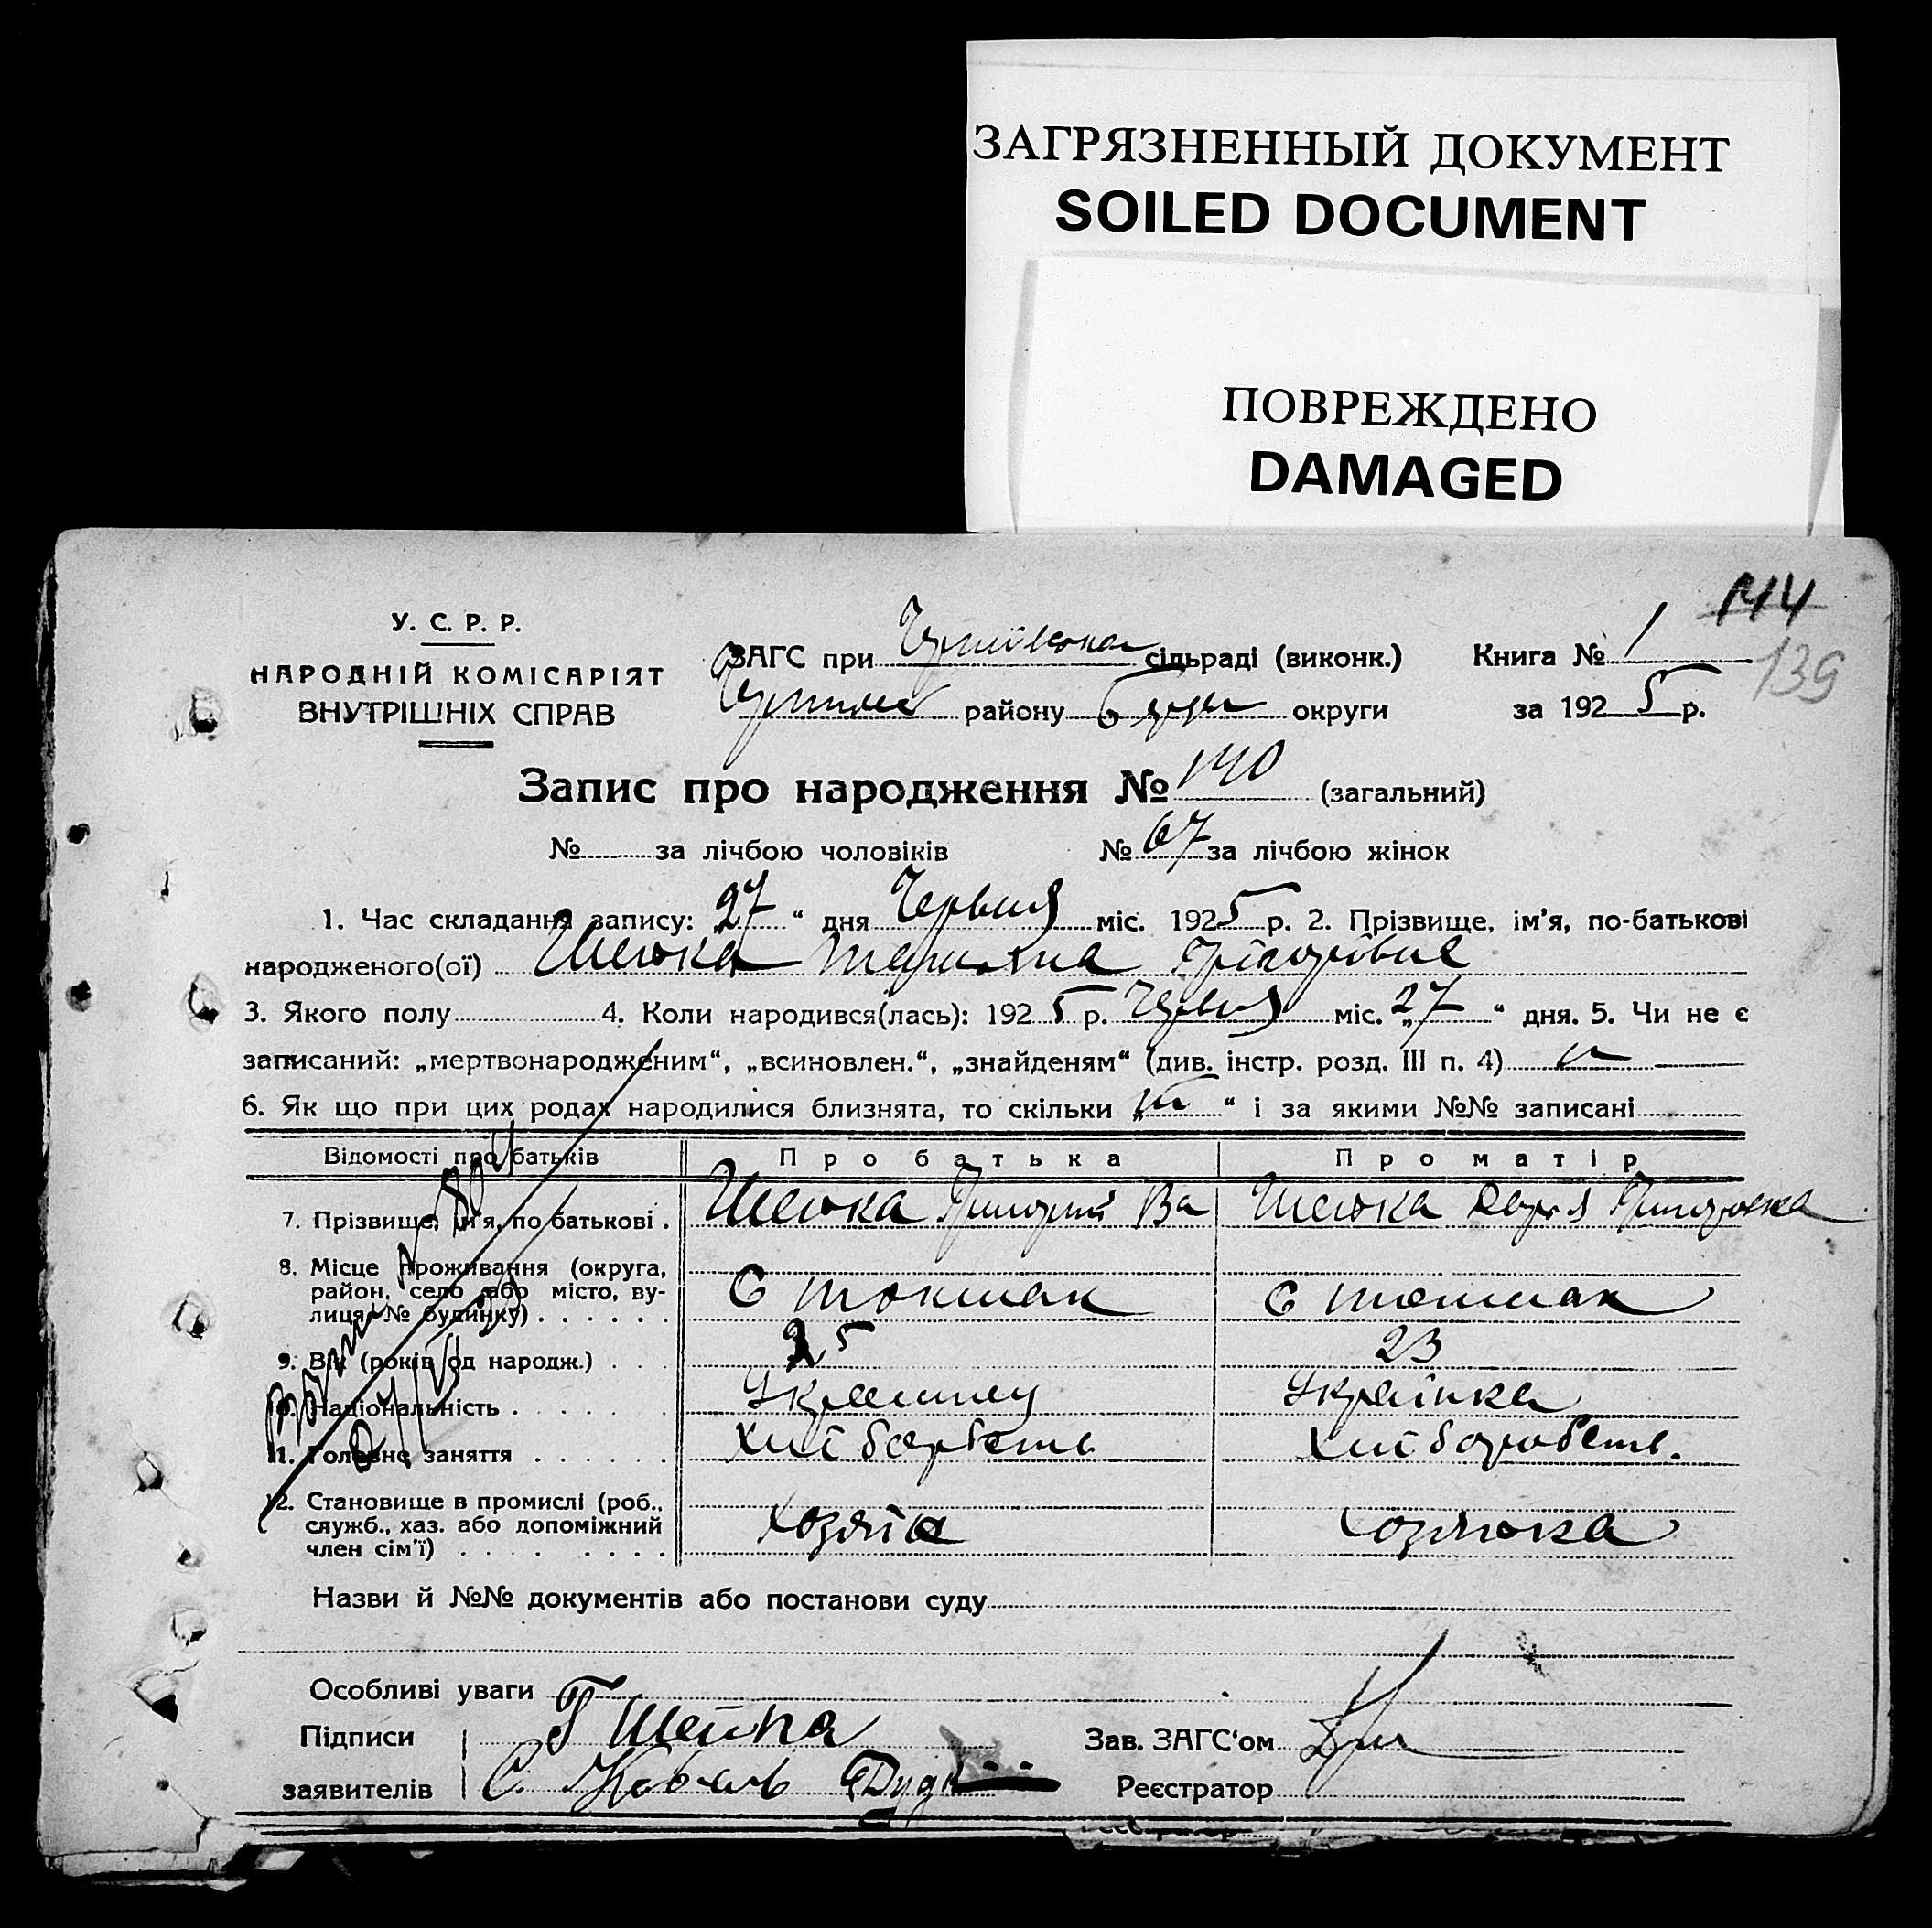 ЗАГРЯЗНЕННЫЙ ДОКУМЕНТ
SOILED DOCUMENT
ПОВРЕЖДЕНО
DAMAGED
144
139
У. С. Р. Р.
НАРОДНІЙ КОМІСАРІЯТ
ВНУТРІШНІХ СПРАВ
ЗАГС при сільраді (виконк.) Книга № 1
району округи за 1925 р.
Запис про народження № 140 (загальний)
№ за лічбою чоловіків № 67 за лічбою жінок
1. Час складання запису: „27“ дня Червня міс. 1925 р. 2. Прізвище, ім'я, по-батькові
народженого(ої) Шейка
3. Якого полу 4. Коли народився(лась): 1925 р. Червня міс. „27“ дня. 5. Чи не є
записаний: „мертвонародженим“, „всиновлен.“, „знайденям“ (див. інстр. розд. III п. 4)
6. Як що при цих родах народилися близнята, то скільки „ “ і за якими №№ записані
Відомості про батьків Про батька Про матір
7. Прізвище, ім'я, по батькові . Шейка Григорий Ва Шейка Дарья
8. Місце проживання (округа,
район, село або місто, ву-
лиця № будинку) . . . . . . С Токмак С Токмак
9. Вік (років од народж.) . . . 25 23
10. Національність . . . . . . Украинец Українка
11. Головне заняття . . . . . . Хліборобств.
12. Становище в промислі (роб.,
служб., хаз. або допоміжний
член сім'ї) . . . . . . . . Хозяїн Хозяйка
Назви й №№ документів або постанови суду
Особливі уваги
Підписи Г Шейка Зав. ЗАГС'ом
заявителів С. Коваль Реєстратор